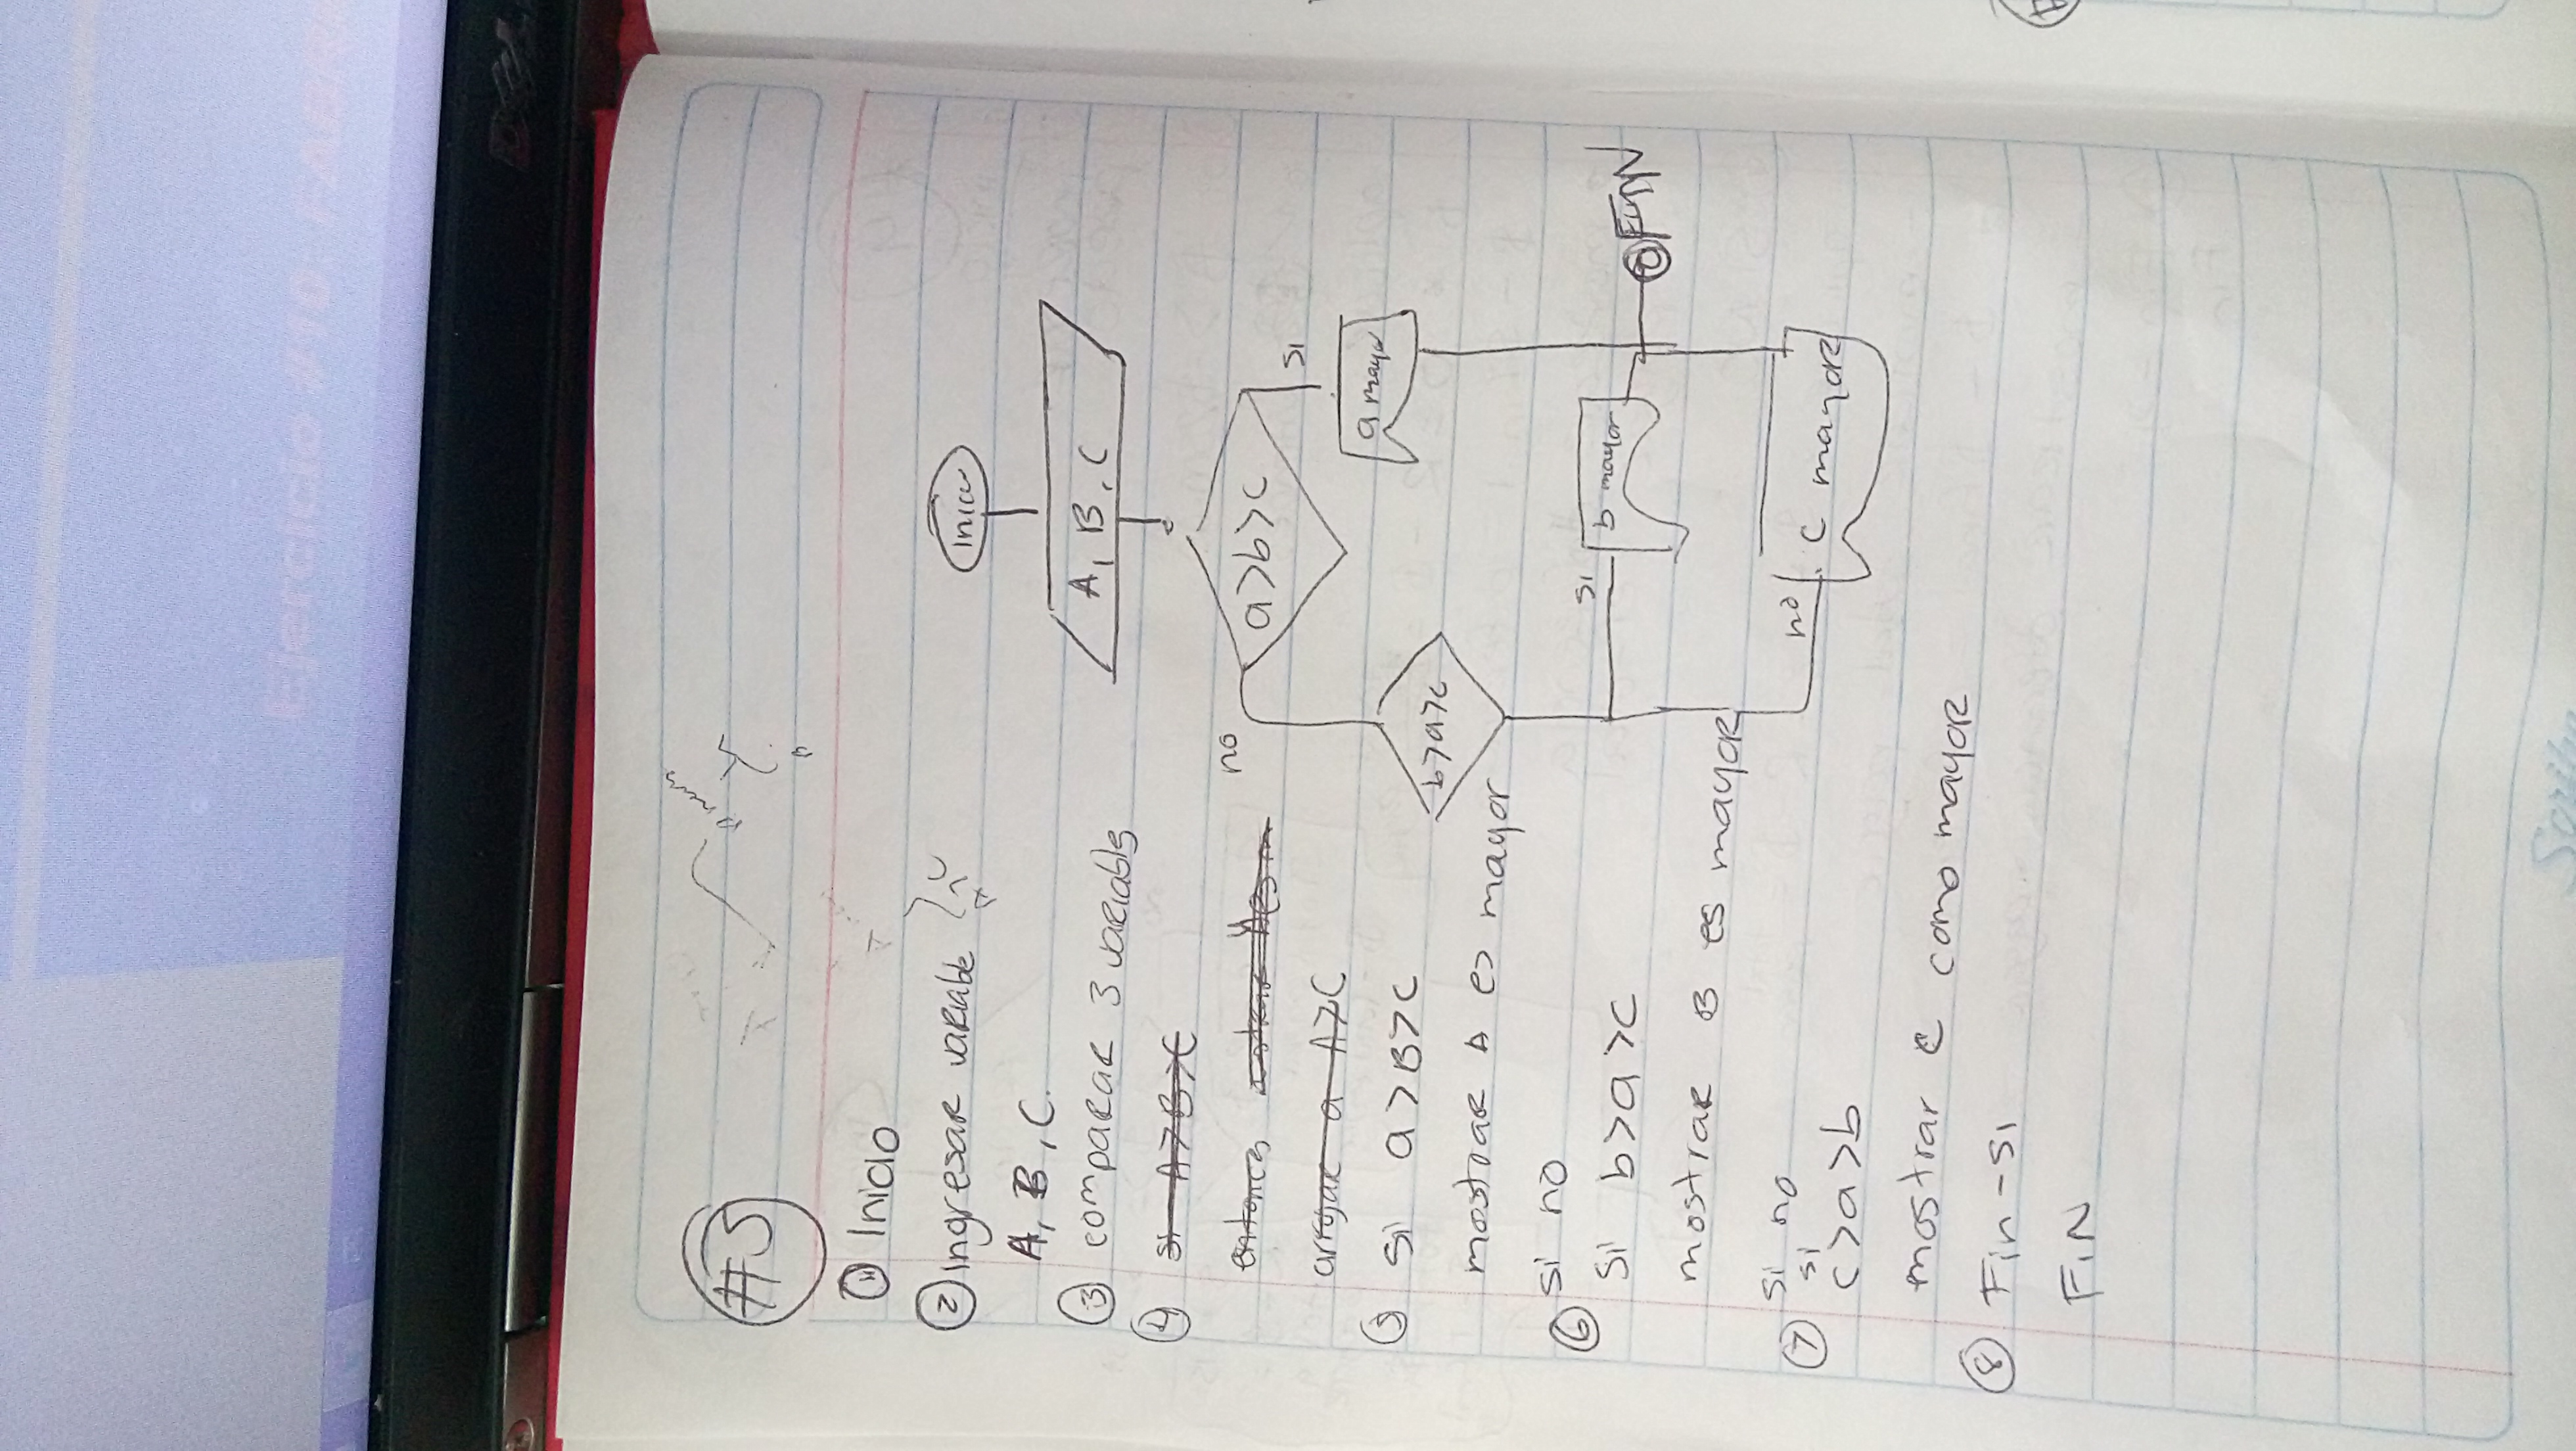 Ejercicio #10
DELL
#5
① Inicio
② Ingresar variable
A, B, C.
③ comparar 3 variabls
④ si A>B>C
entonces
arrojar a A>C
⑤ si a>B>C
mostrar A es mayor
⑥ si no
si b>a>c
mostrar B es mayor
⑦ si no
si
c>a>b
mostrar C como mayor
⑧ Fin-si
FIN
inicio
A, B, C
a>b>c
no
si
a mayor
b>a>c
si
b mayor
FIN
no
C mayor
Scribe